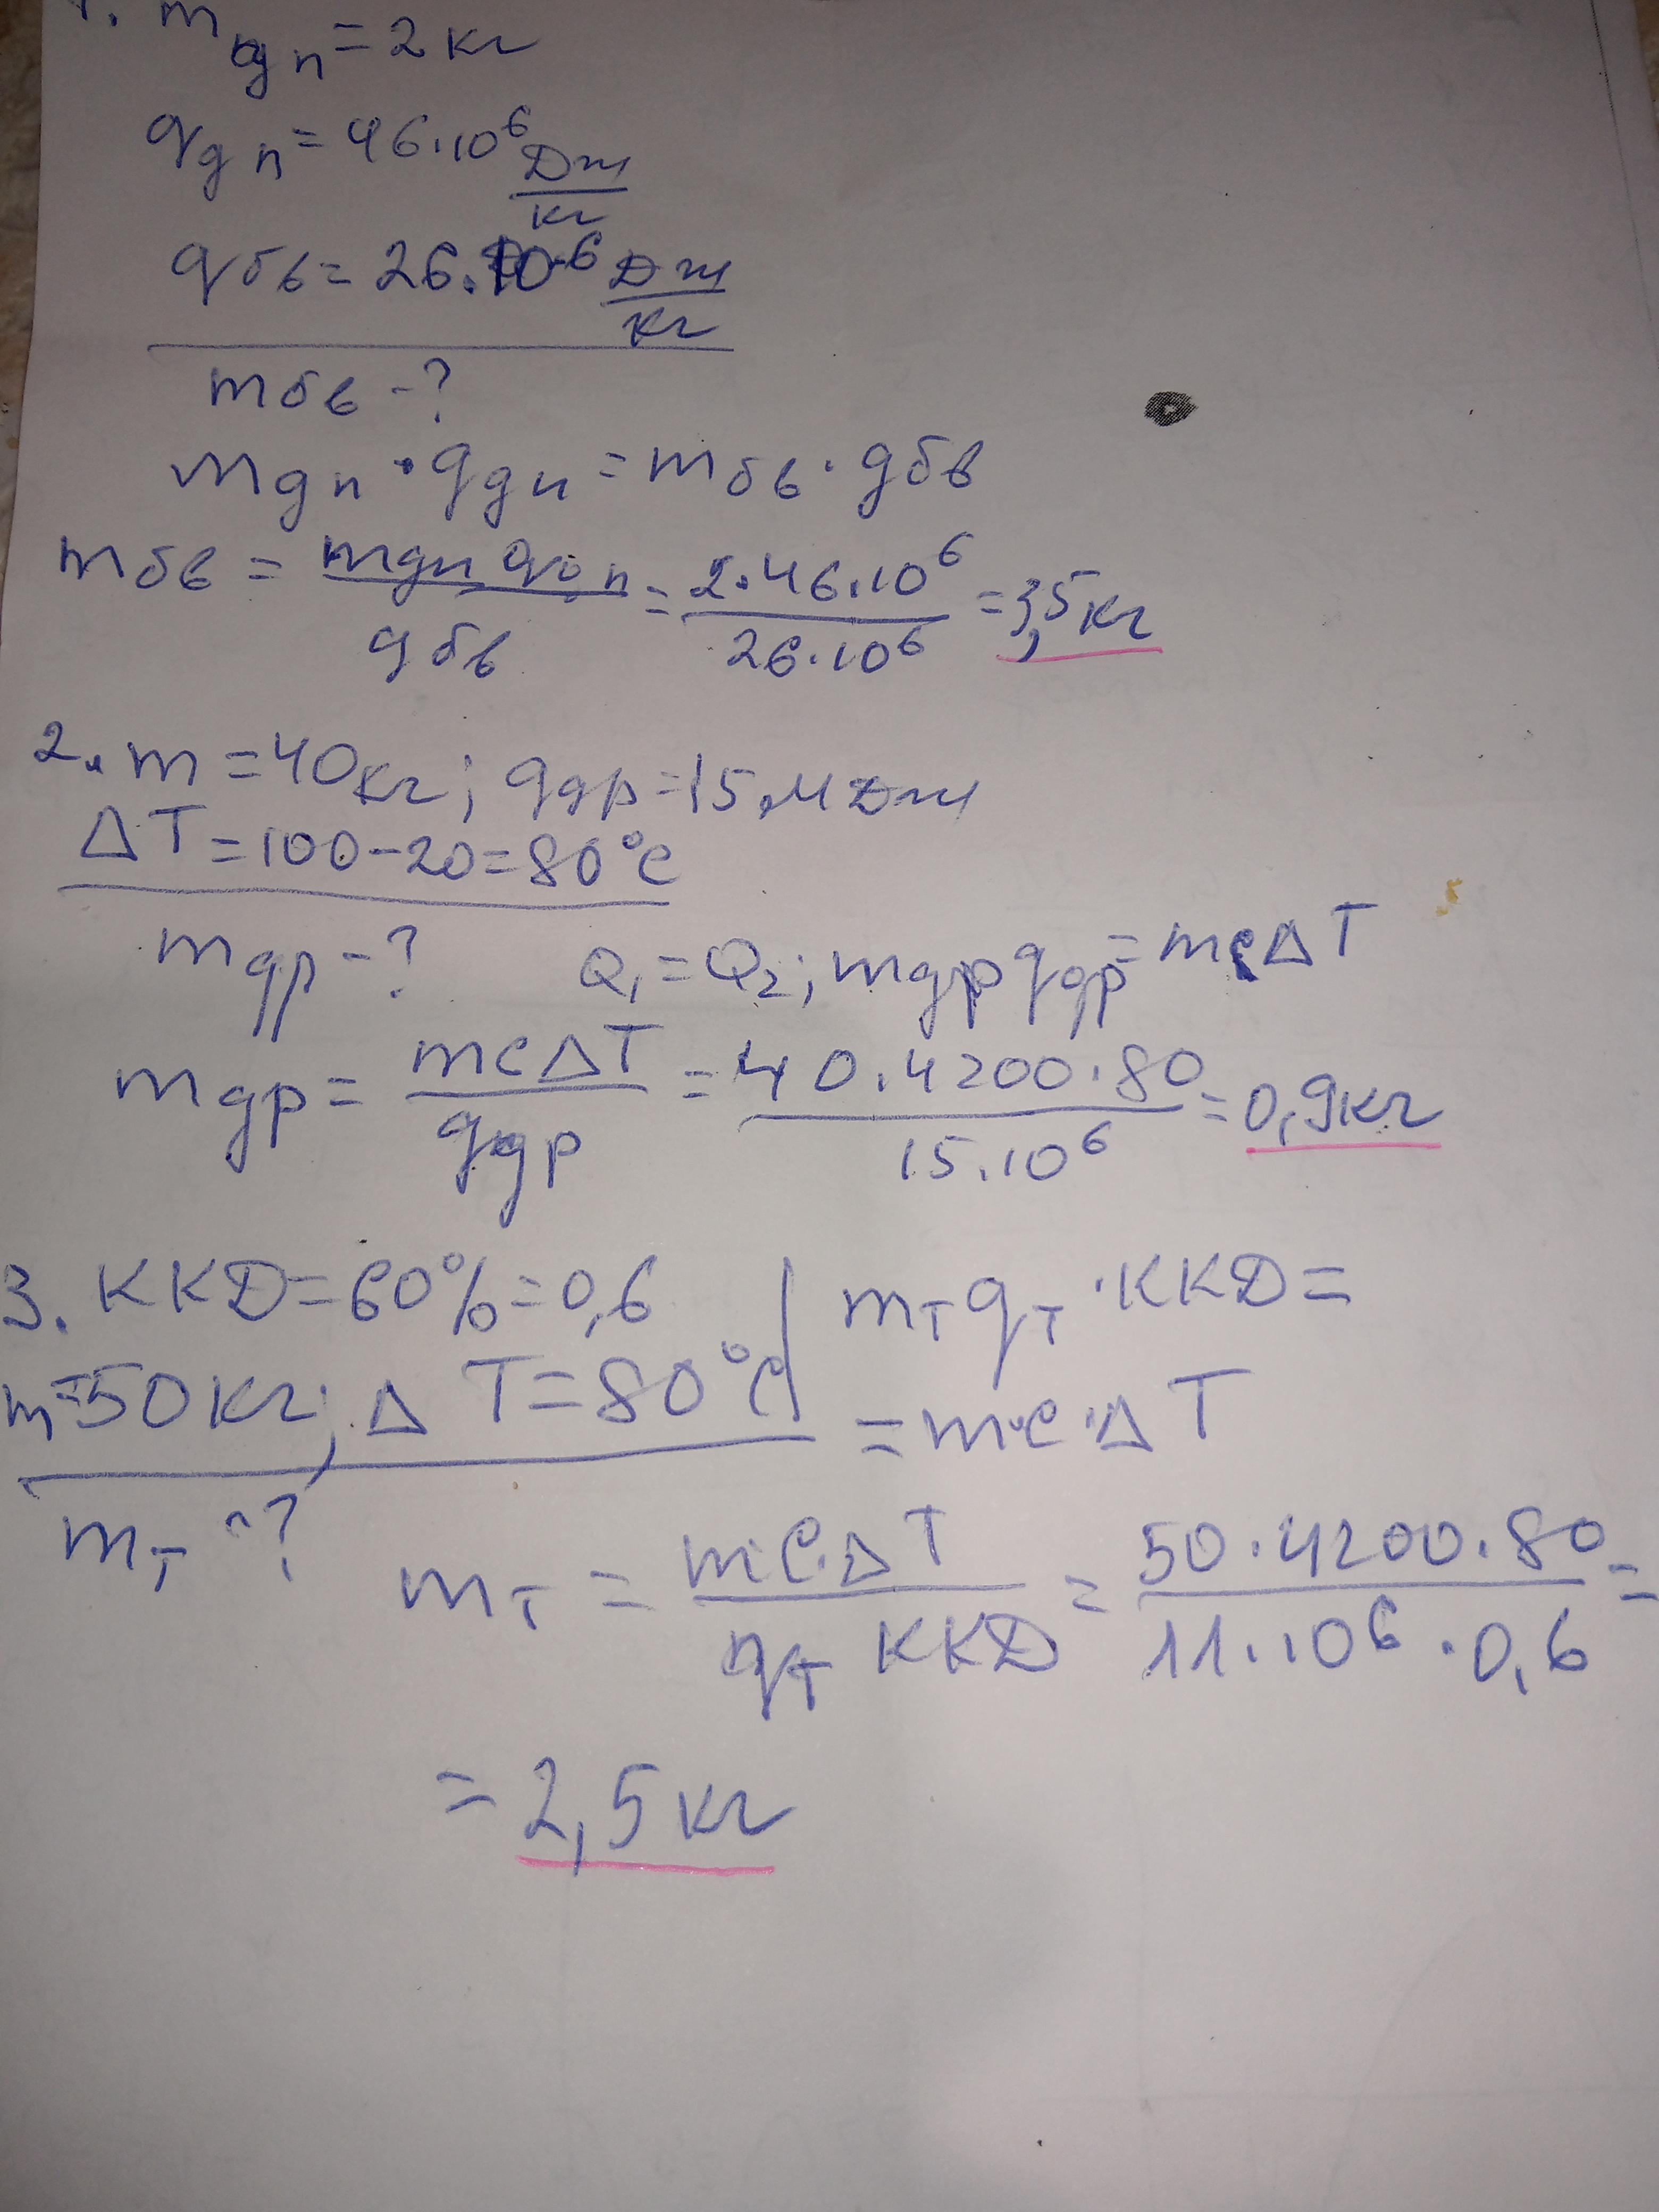 1. m дп = 2 кг
q дп = 46·10⁶ Дж/кг
q бв = 26·10⁶ Дж/кг
m бв - ?
m дп · q дп = m бв · q бв
m бв = m дп q дп / q бв = 2·46·10⁶ / 26·10⁶ = 3,5 кг
2. m = 40 кг; q др = 15 МДж
ΔT = 100 - 20 = 80°C
m др - ? Q₁ = Q₂; m др q др = mcΔT
m др = mcΔT / q др = 40·4200·80 / 15·10⁶ = 0,9 кг
3. ККД = 60% = 0,6 | m т q т · ККД =
m = 50 кг; ΔT = 80°C | = m·c·ΔT
m т - ?
m т = mc·ΔT / q т ККД = 50·4200·80 / 11·10⁶·0,6 =
= 2,5 кг